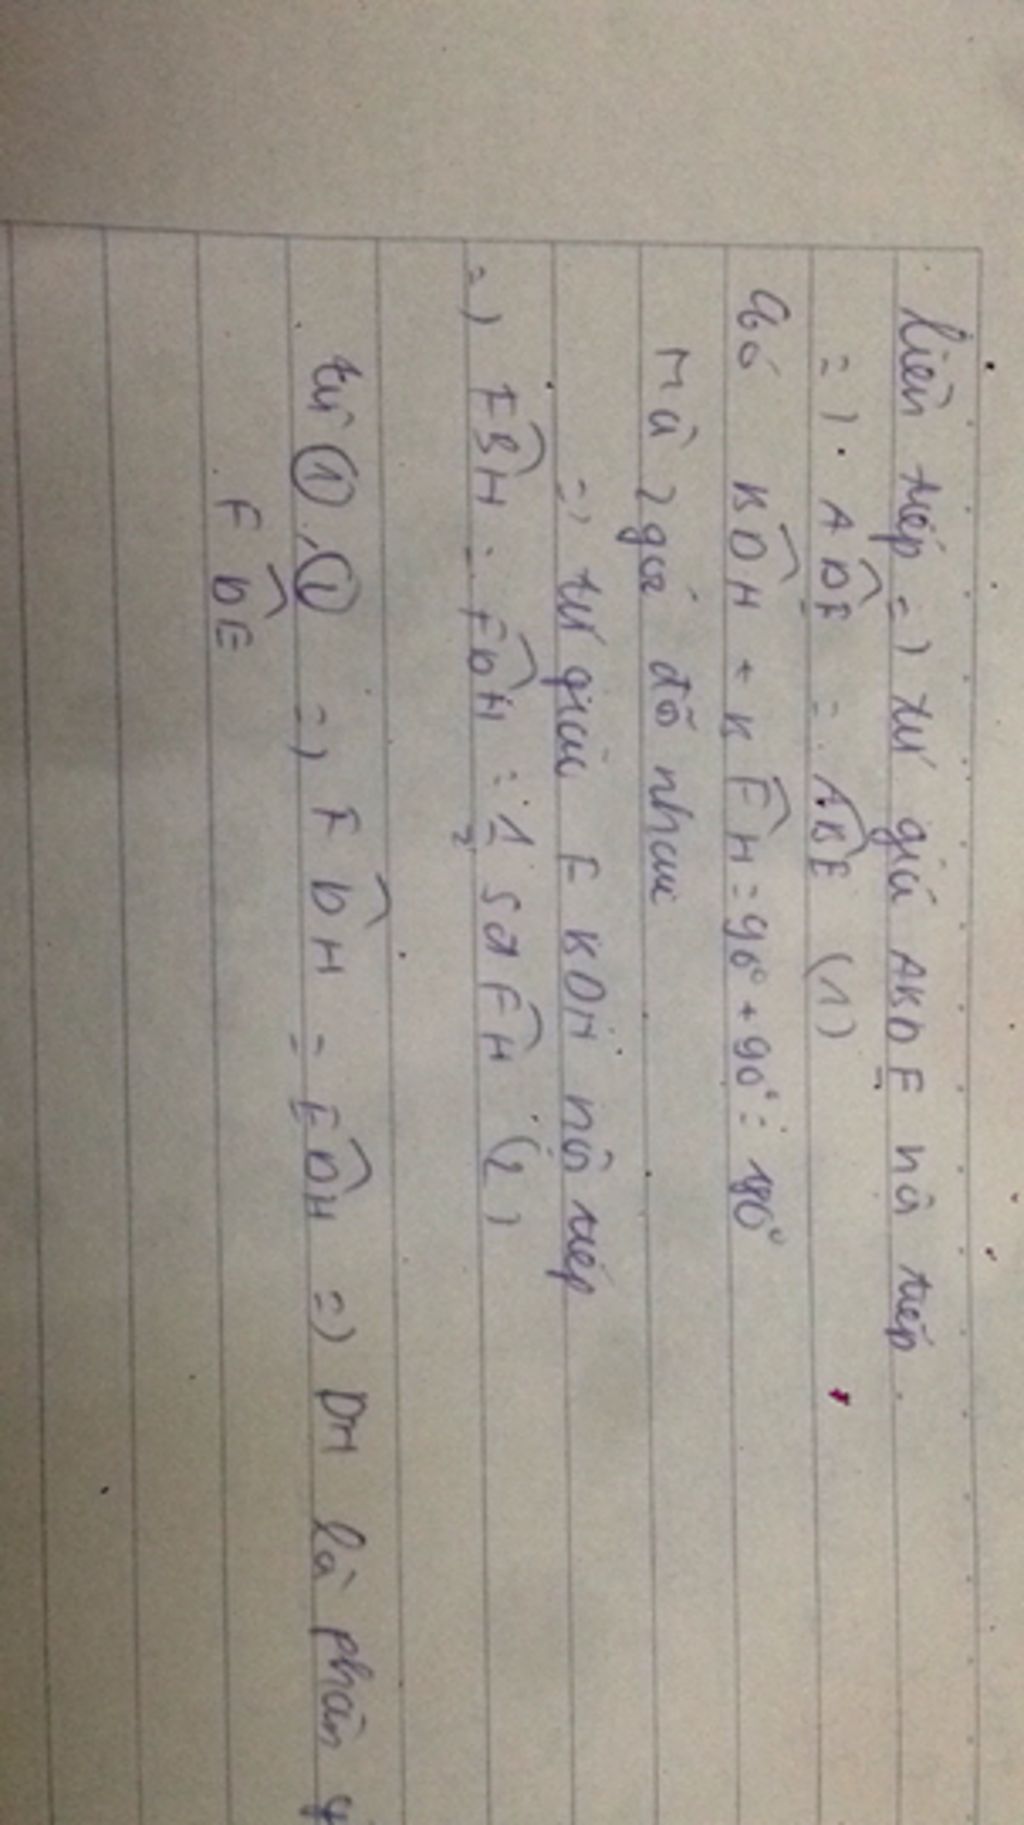 liên tiếp =) tứ giá AKDE nội tiếp.
=) . ADE = ABE (1)
Có KDH + KFH = 90° + 90° = 180°
Mà 2 góc đối nhau
=) tứ giác FKDH nội tiếp
=) FBH = FDH = 1/2 sđ FH (2)
từ ①, ① =) FDH = EDH =) DH là phân
FDE